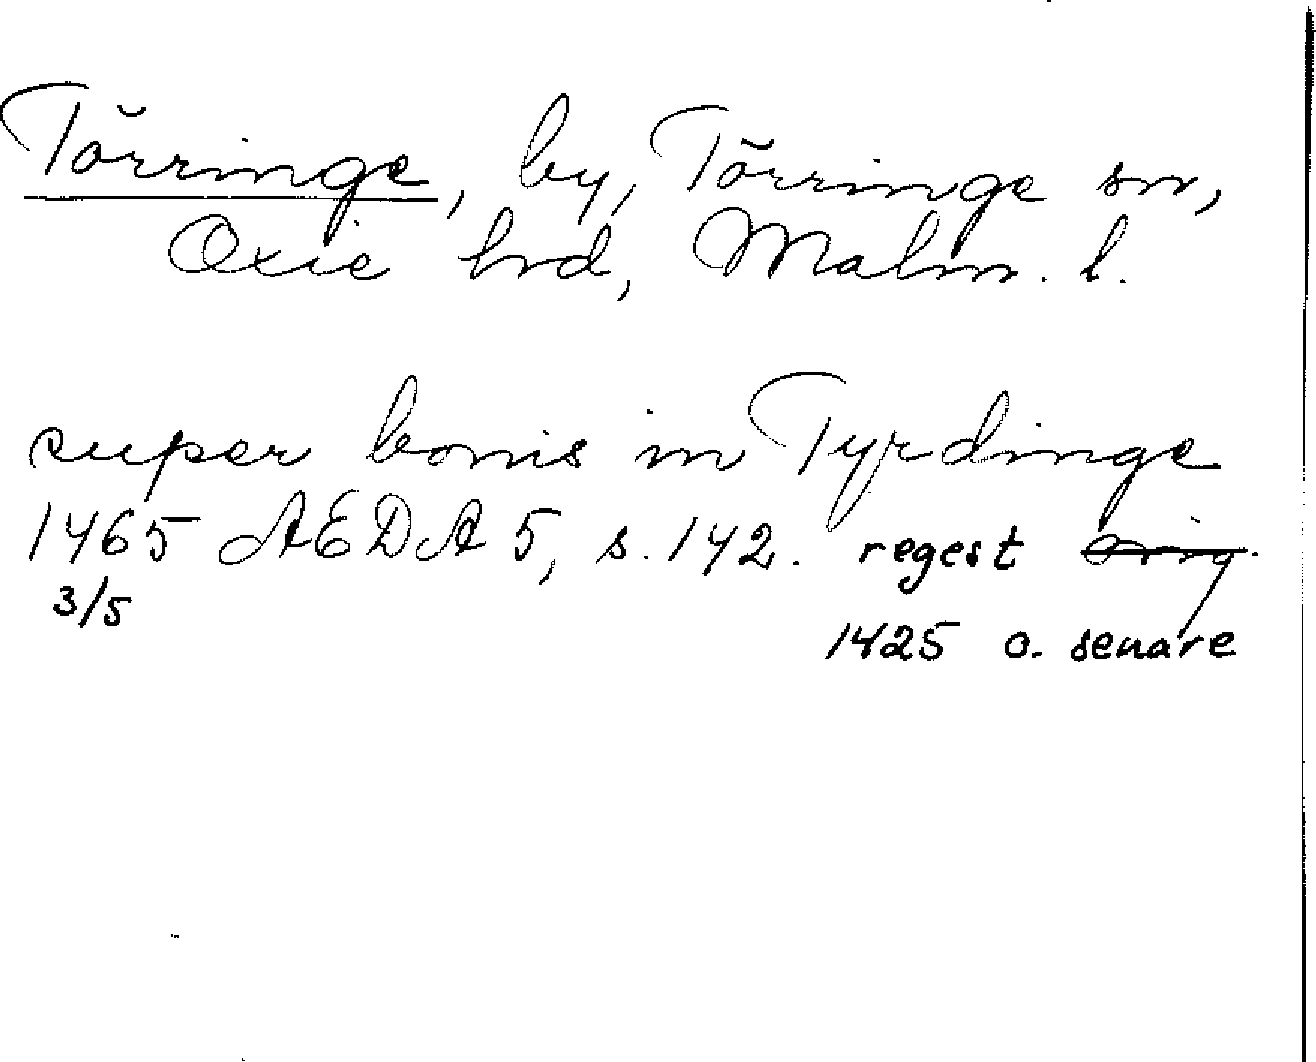 Törringe, by, Törringe sn,
Oxie hrd, Malm. l.
super bonis in Tyrdinge
1465 AEDA 5, s. 142. regest
3/5
1425 o. senare